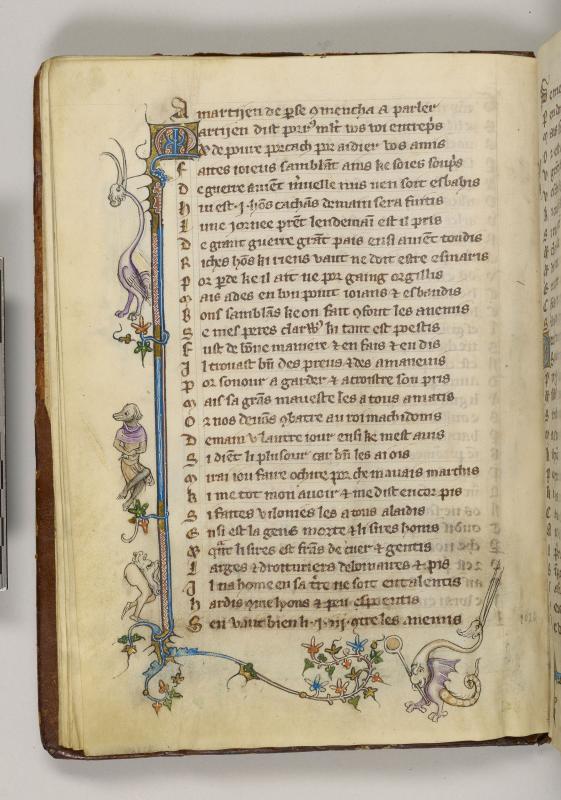 A martijen de pse ꝯmencha a parler
M artijen dist porr⁹ mlt vos voi entrepͬs
de poure porcach por aidier vos amis
F aites ioieus samblant ains ke soies
D e guerre auient nus nen soit esbahis
H ui est .i. hõs cachãs demain sera fuitis
L une iornee prẽt lendemain est il pris
D e grant guerre grãt pais ensi auiẽt toudis
R iches hõs ki riens vaut ne doit estre esmaris
P or pde ke il ait ne por gaing orgillis
M ais ades en bon point ioians ⁊ esbaudis
B ons samblãs ke on fait ꝯfont les anemis
S e mes peres ki tant est
F ust de bõne maniere ⁊ en fais ⁊ en dis
I l trouast bñ des preus ⁊ des amaneuis
P or sonour a garder ⁊ acroistre son pris
M ais sa grãs mauestie les a tous amatis
O r nos deuõs ꝯbatre au roi machidonis
D emain v lautre iour ensi ke mest auis
S i diẽt li plusour car bñ les ai ois
M irai iou faire ochirre por che mauais marchis
K i me tot mon auoir ⁊ me dist encor pis
S i faites vilonies les a tous alaidis
E nsi est la gens morte ⁊ li sires honis
M qñt li sires est frãs de cuer ⁊ gentis
L arges ⁊ droituriers debonaires ⁊ pis
I l na home en sa tre ne soit entalentis
H ardis ꝯme lyons ⁊ peu espoentis
S en vaut bien li .i. .iii. ꝯtre les anemis